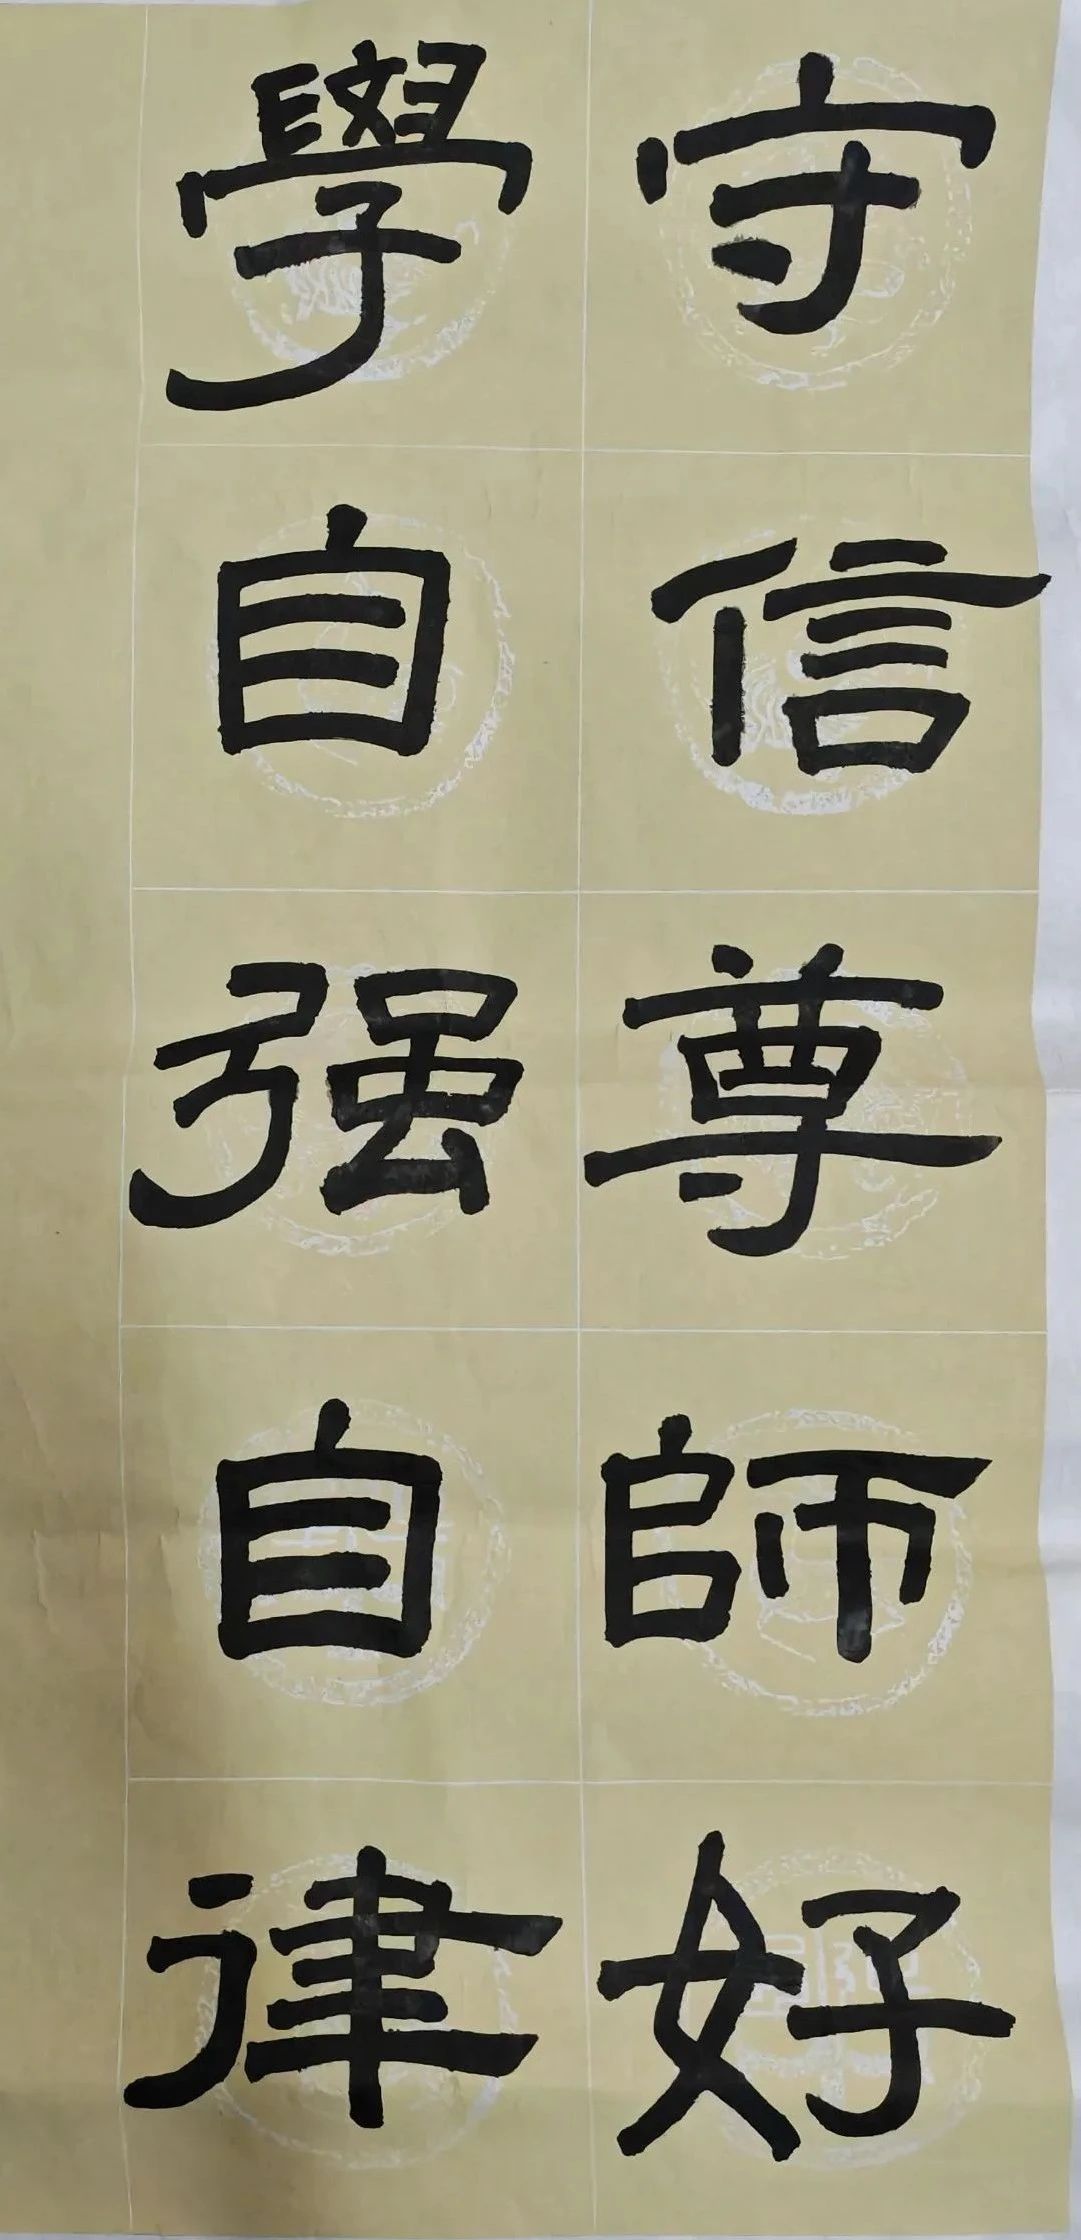 守信尊師好
學自强自律